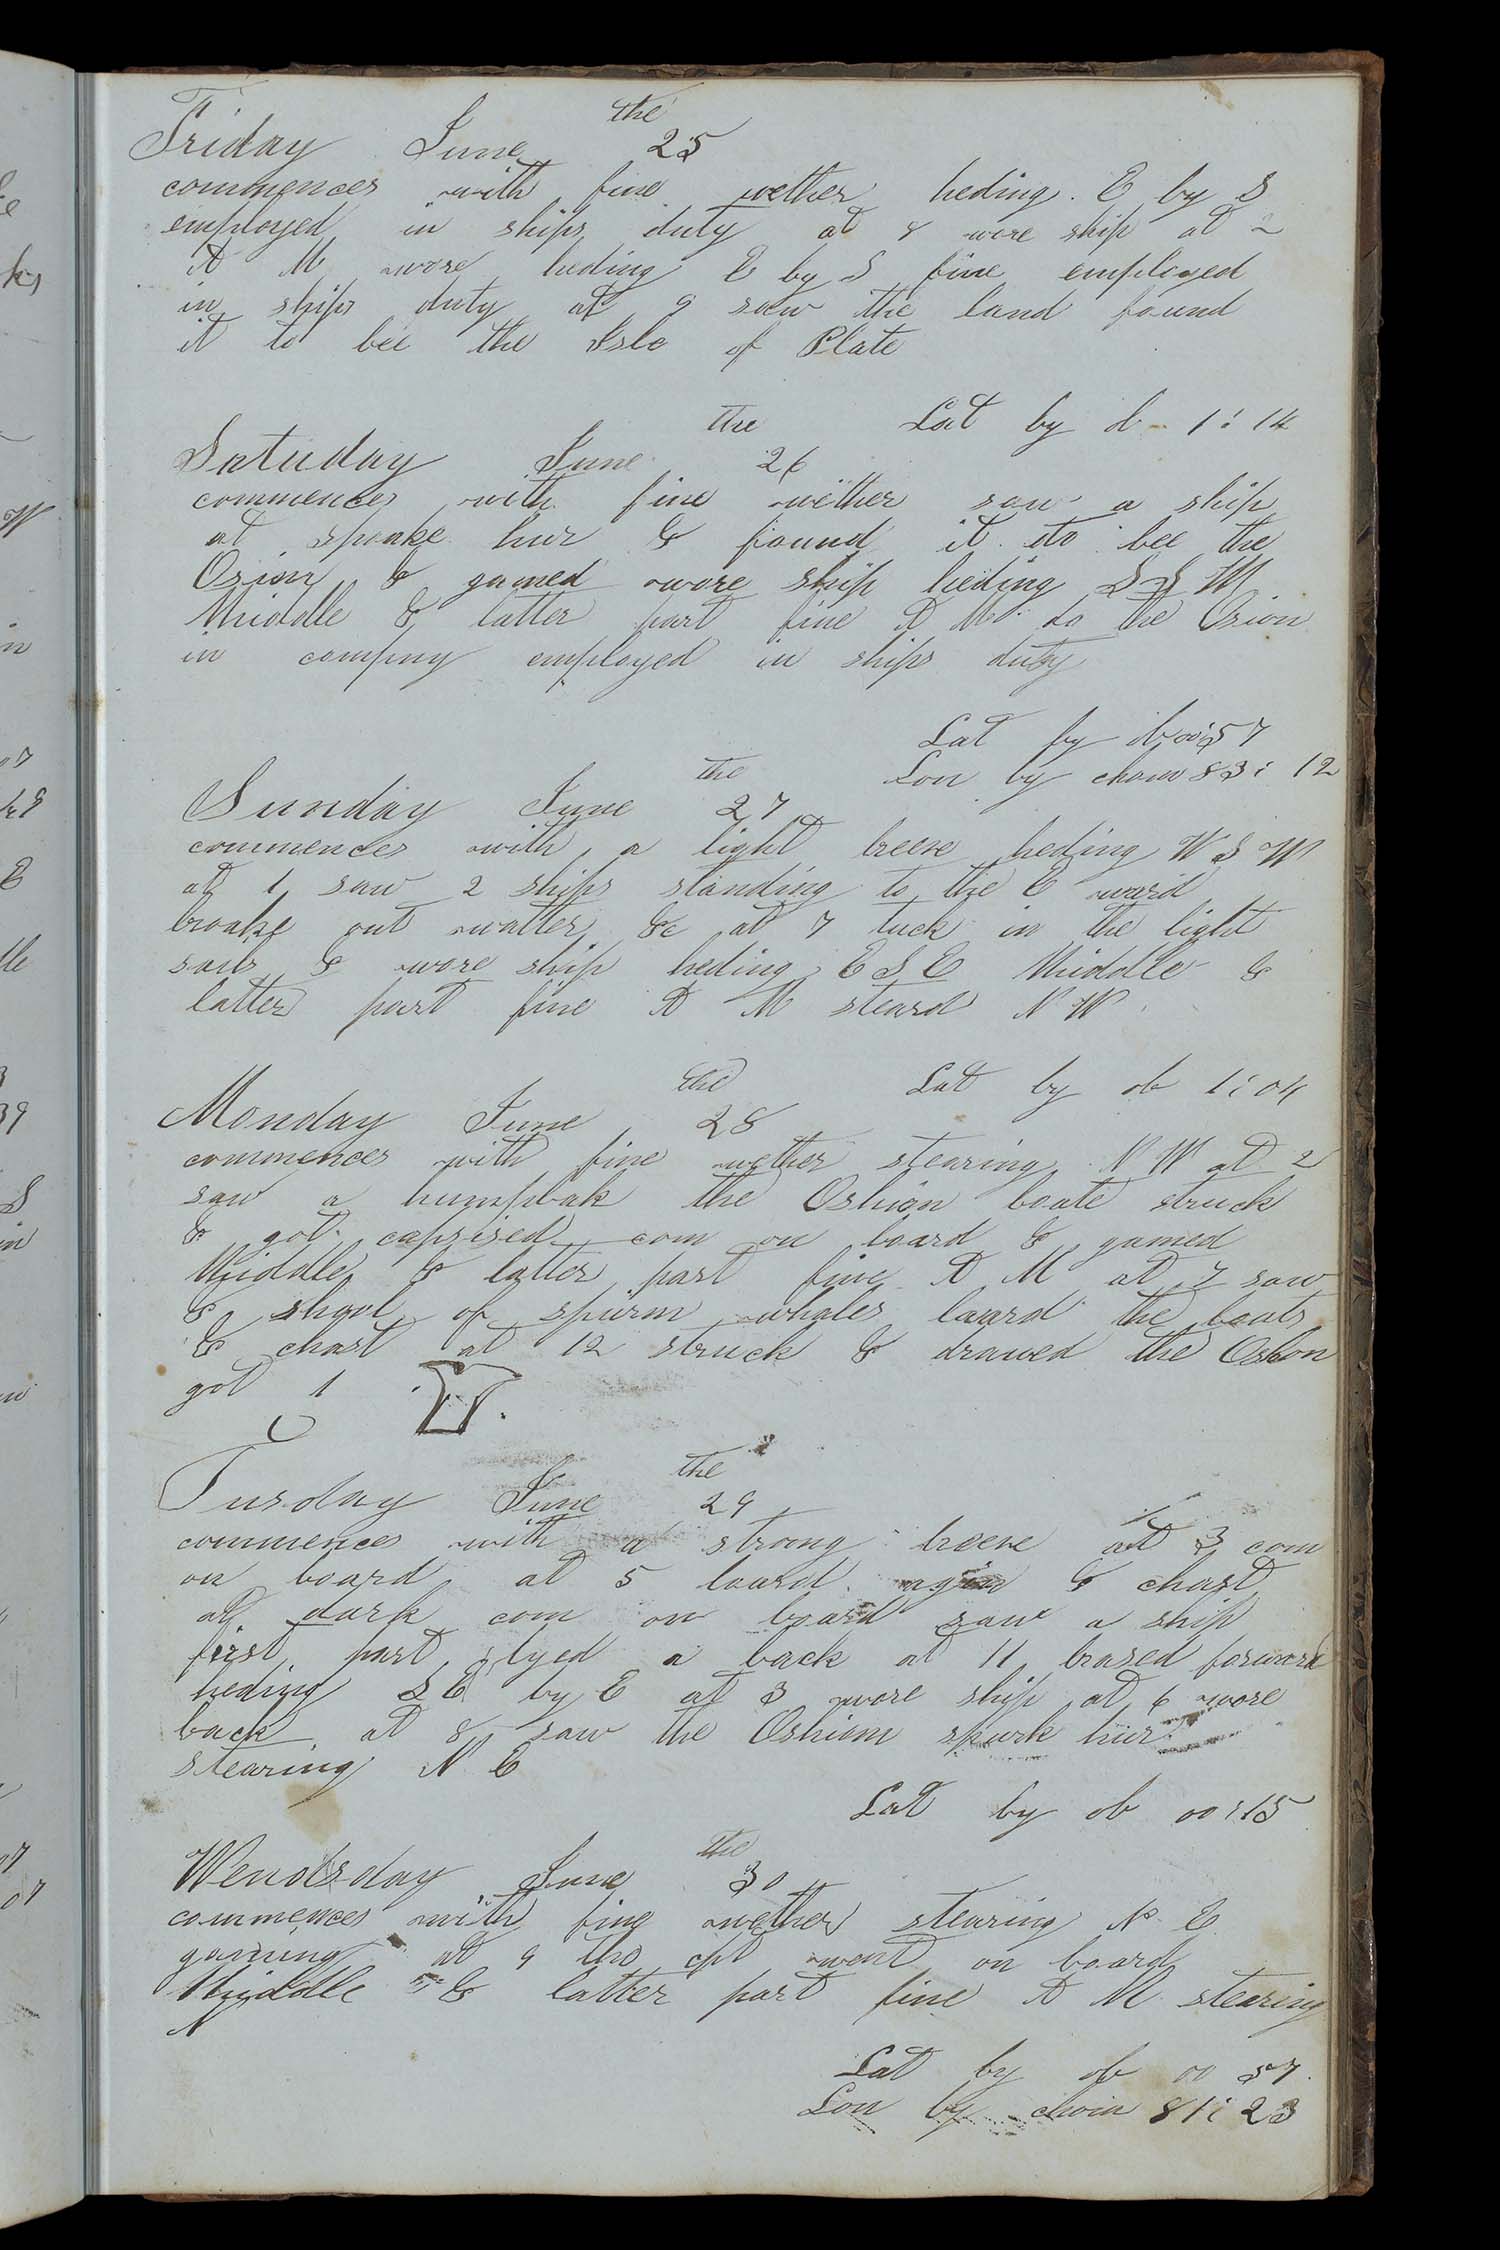 Friday June the 25
commences with fine wether heding E by S
employed in ships duty at 8 wore ship at 2
A M wore heding E by S fine employed
in ships duty at 9 saw the land found
it to bee the Isle of Plate
Lat by ob 1:14
Satuday June the 26
commences with fine wether saw a ship
at spoake hur & found it to bee the
Orion & gamed wore ship heding S S W
Middle & latter part fine A M do the Orion
in compny employed in ships duty
Lat by ob 00:57
Lon by chom 83:12
Sunday June the 27
commences with a light breese heding W S W
at 1 saw 2 ships standing to the E ward
broake out watter &c at 7 tuck in the light
sails & wore ship heding E S E Middle &
latter part fine A M steard N W
Lat by ob 1:04
Monday June the 28
commences with fine wether stearing N W at 2
saw a humpbak the Oshion boate struck
& got capsised com on board & gamed
Middle & latter part fine A M at 7 saw
& shool of spurm whales loard the boats
& chast at 12 struck & drawed the Oshon
got 1
Tusday June the 29
commences with a strong breese at 3 com
on board at 5 loard agin & chast
at dark com on board saw a ship
first part lyed a back at 11 brased forward
heding S E by E at 3 wore ship at 6 wore
back at 8 saw the Oshion spurk hur
stearing N E
Lat by ob 00:15
Wendsday June the 30
commences with fine wether stearing N E
gaming at 9 the cpt went on board
Middle & latter part fine A M stearing
N
Lat by ob 00 57
Lon by chom 81:23